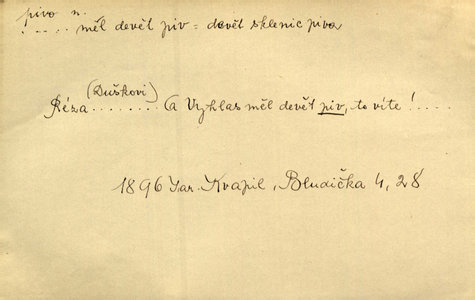 pivo n.
. . . . . měl devět piv = devět sklenic piva
(Duškovi)
Réza . . . . . . . . (A Vyhlas měl devět piv, to víte! . . . .
1896 Jar. Kvapil, Bludička 4, 28